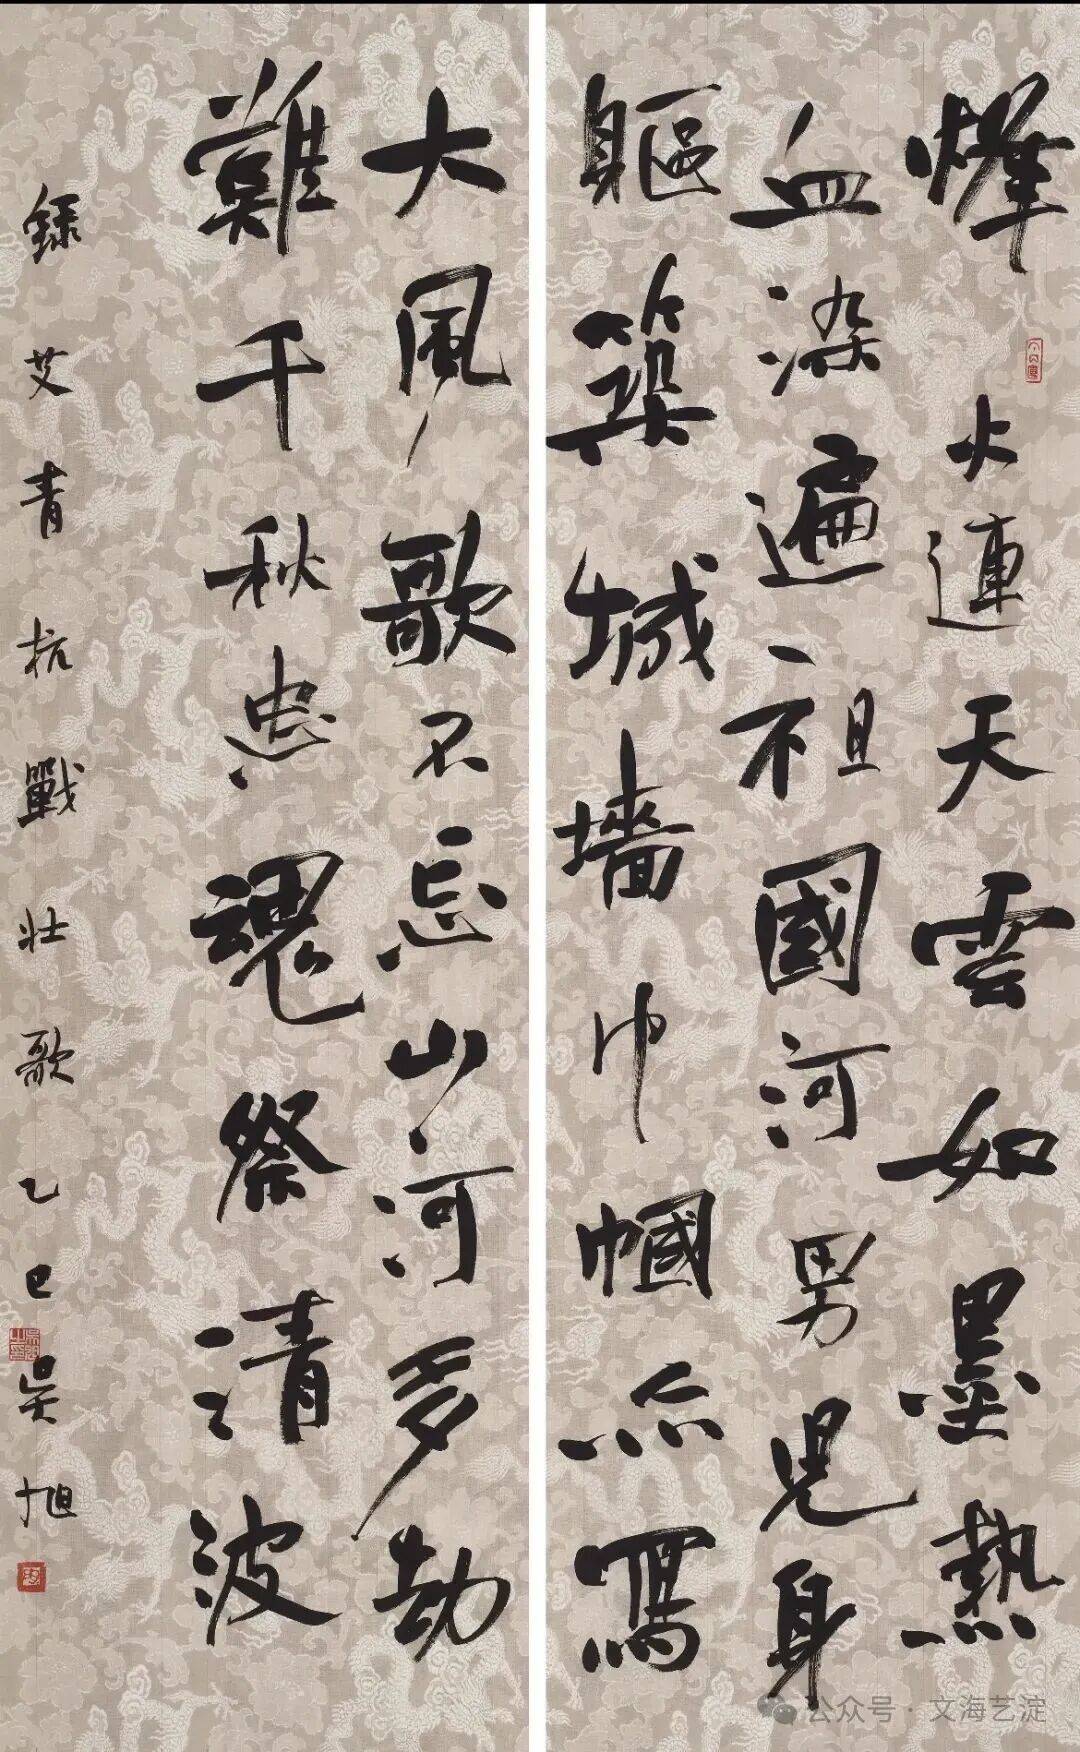 烽火連天雲如墨熱
血染遍祖國河男兒身
軀築城墻巾幗亦寫
大風歌不忘山河多劫
難千秋忠魂祭清波
錄艾青抗戰壮歌乙巳吴旭
公众号 · 文海艺淀